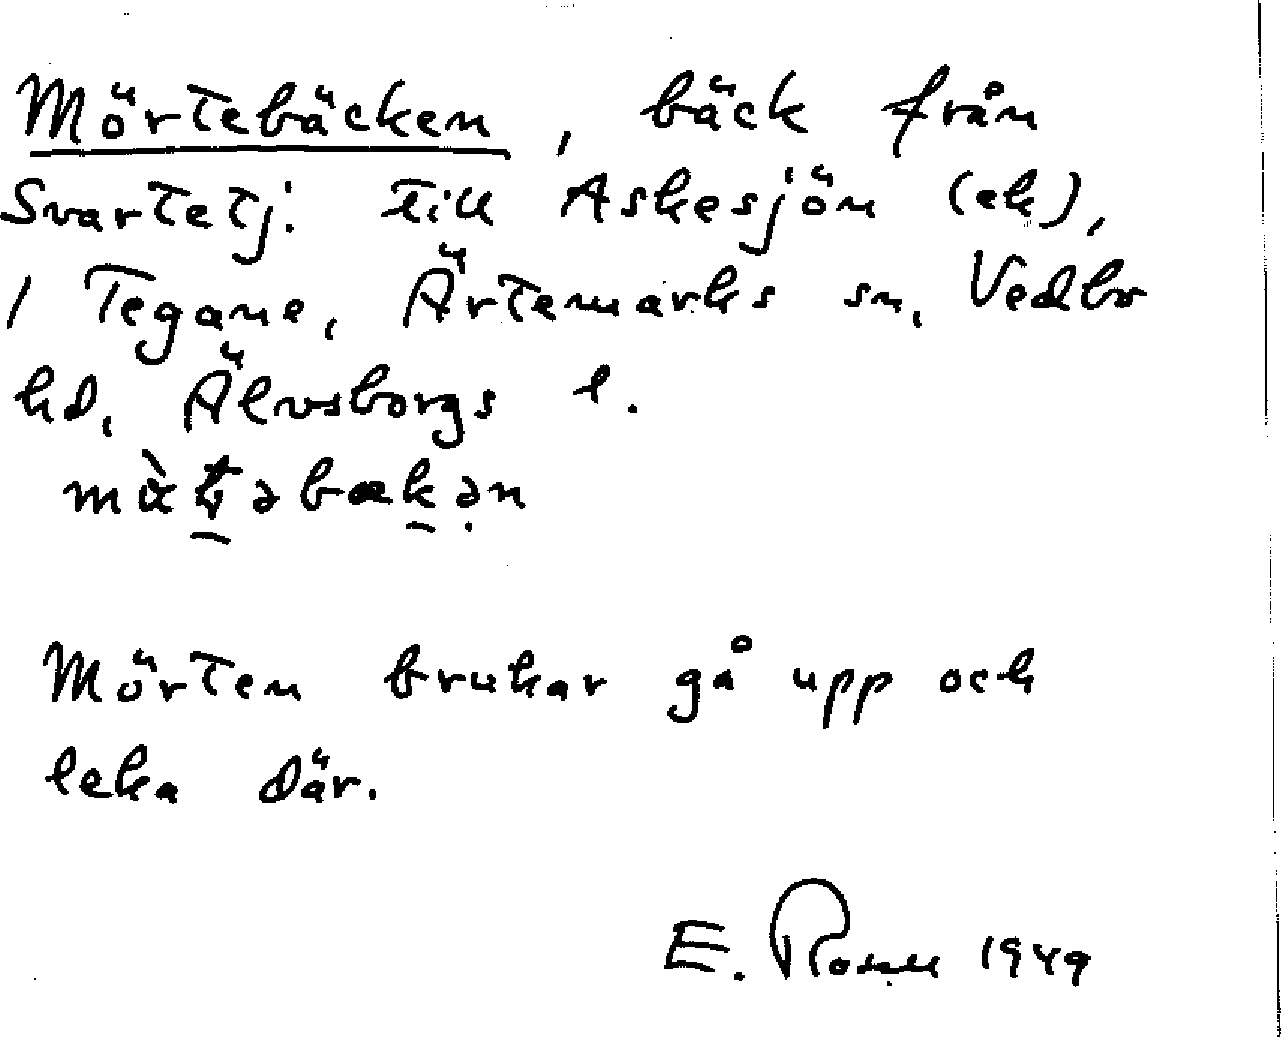 Mörtebäcken, bäck från
Svartetj. till Askesjön (ek),
1 Tegane, Ärtemarks sn, Vedbo
hd, Älvsborgs l.
Mörten brukar gå upp och
leka där.
E. Rosell 1949